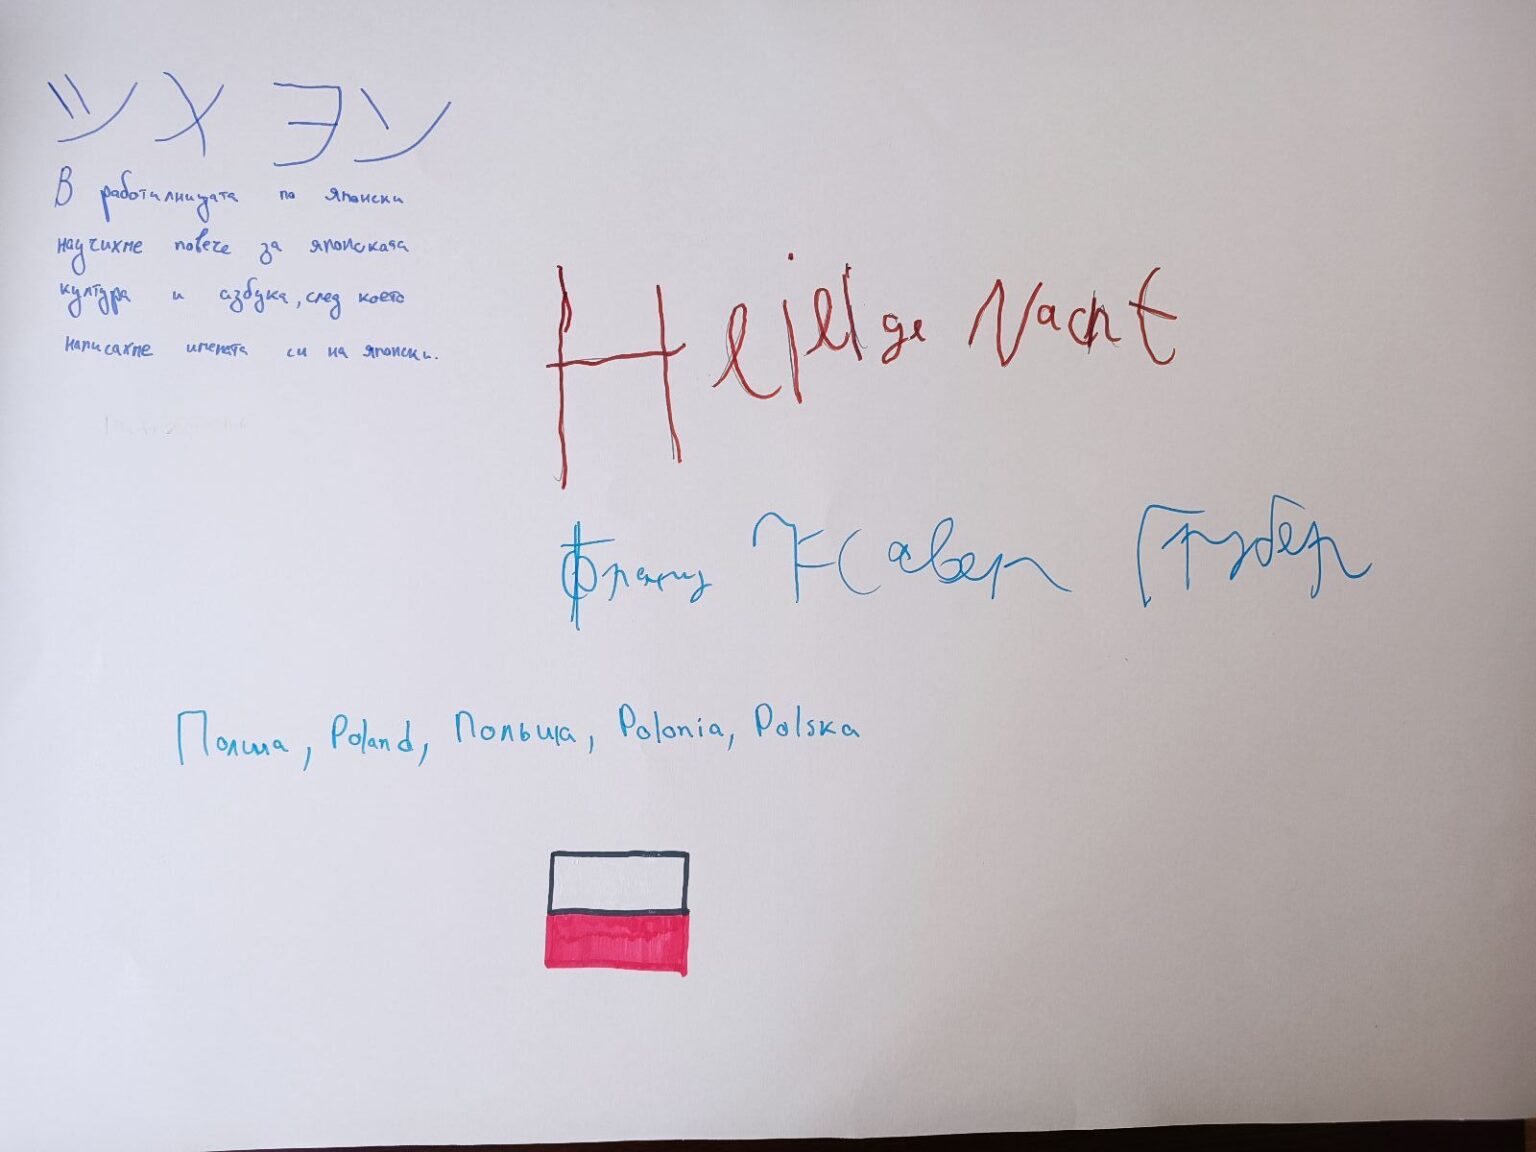 シメヨン
В работилницата по Японски
научихме повече за японската
култура и азбука, след което
написахме имената си на японски.
Hejelge Nacht
Франц Ксавер Грубер
Полша, Poland, Польща, Polonia, Polska